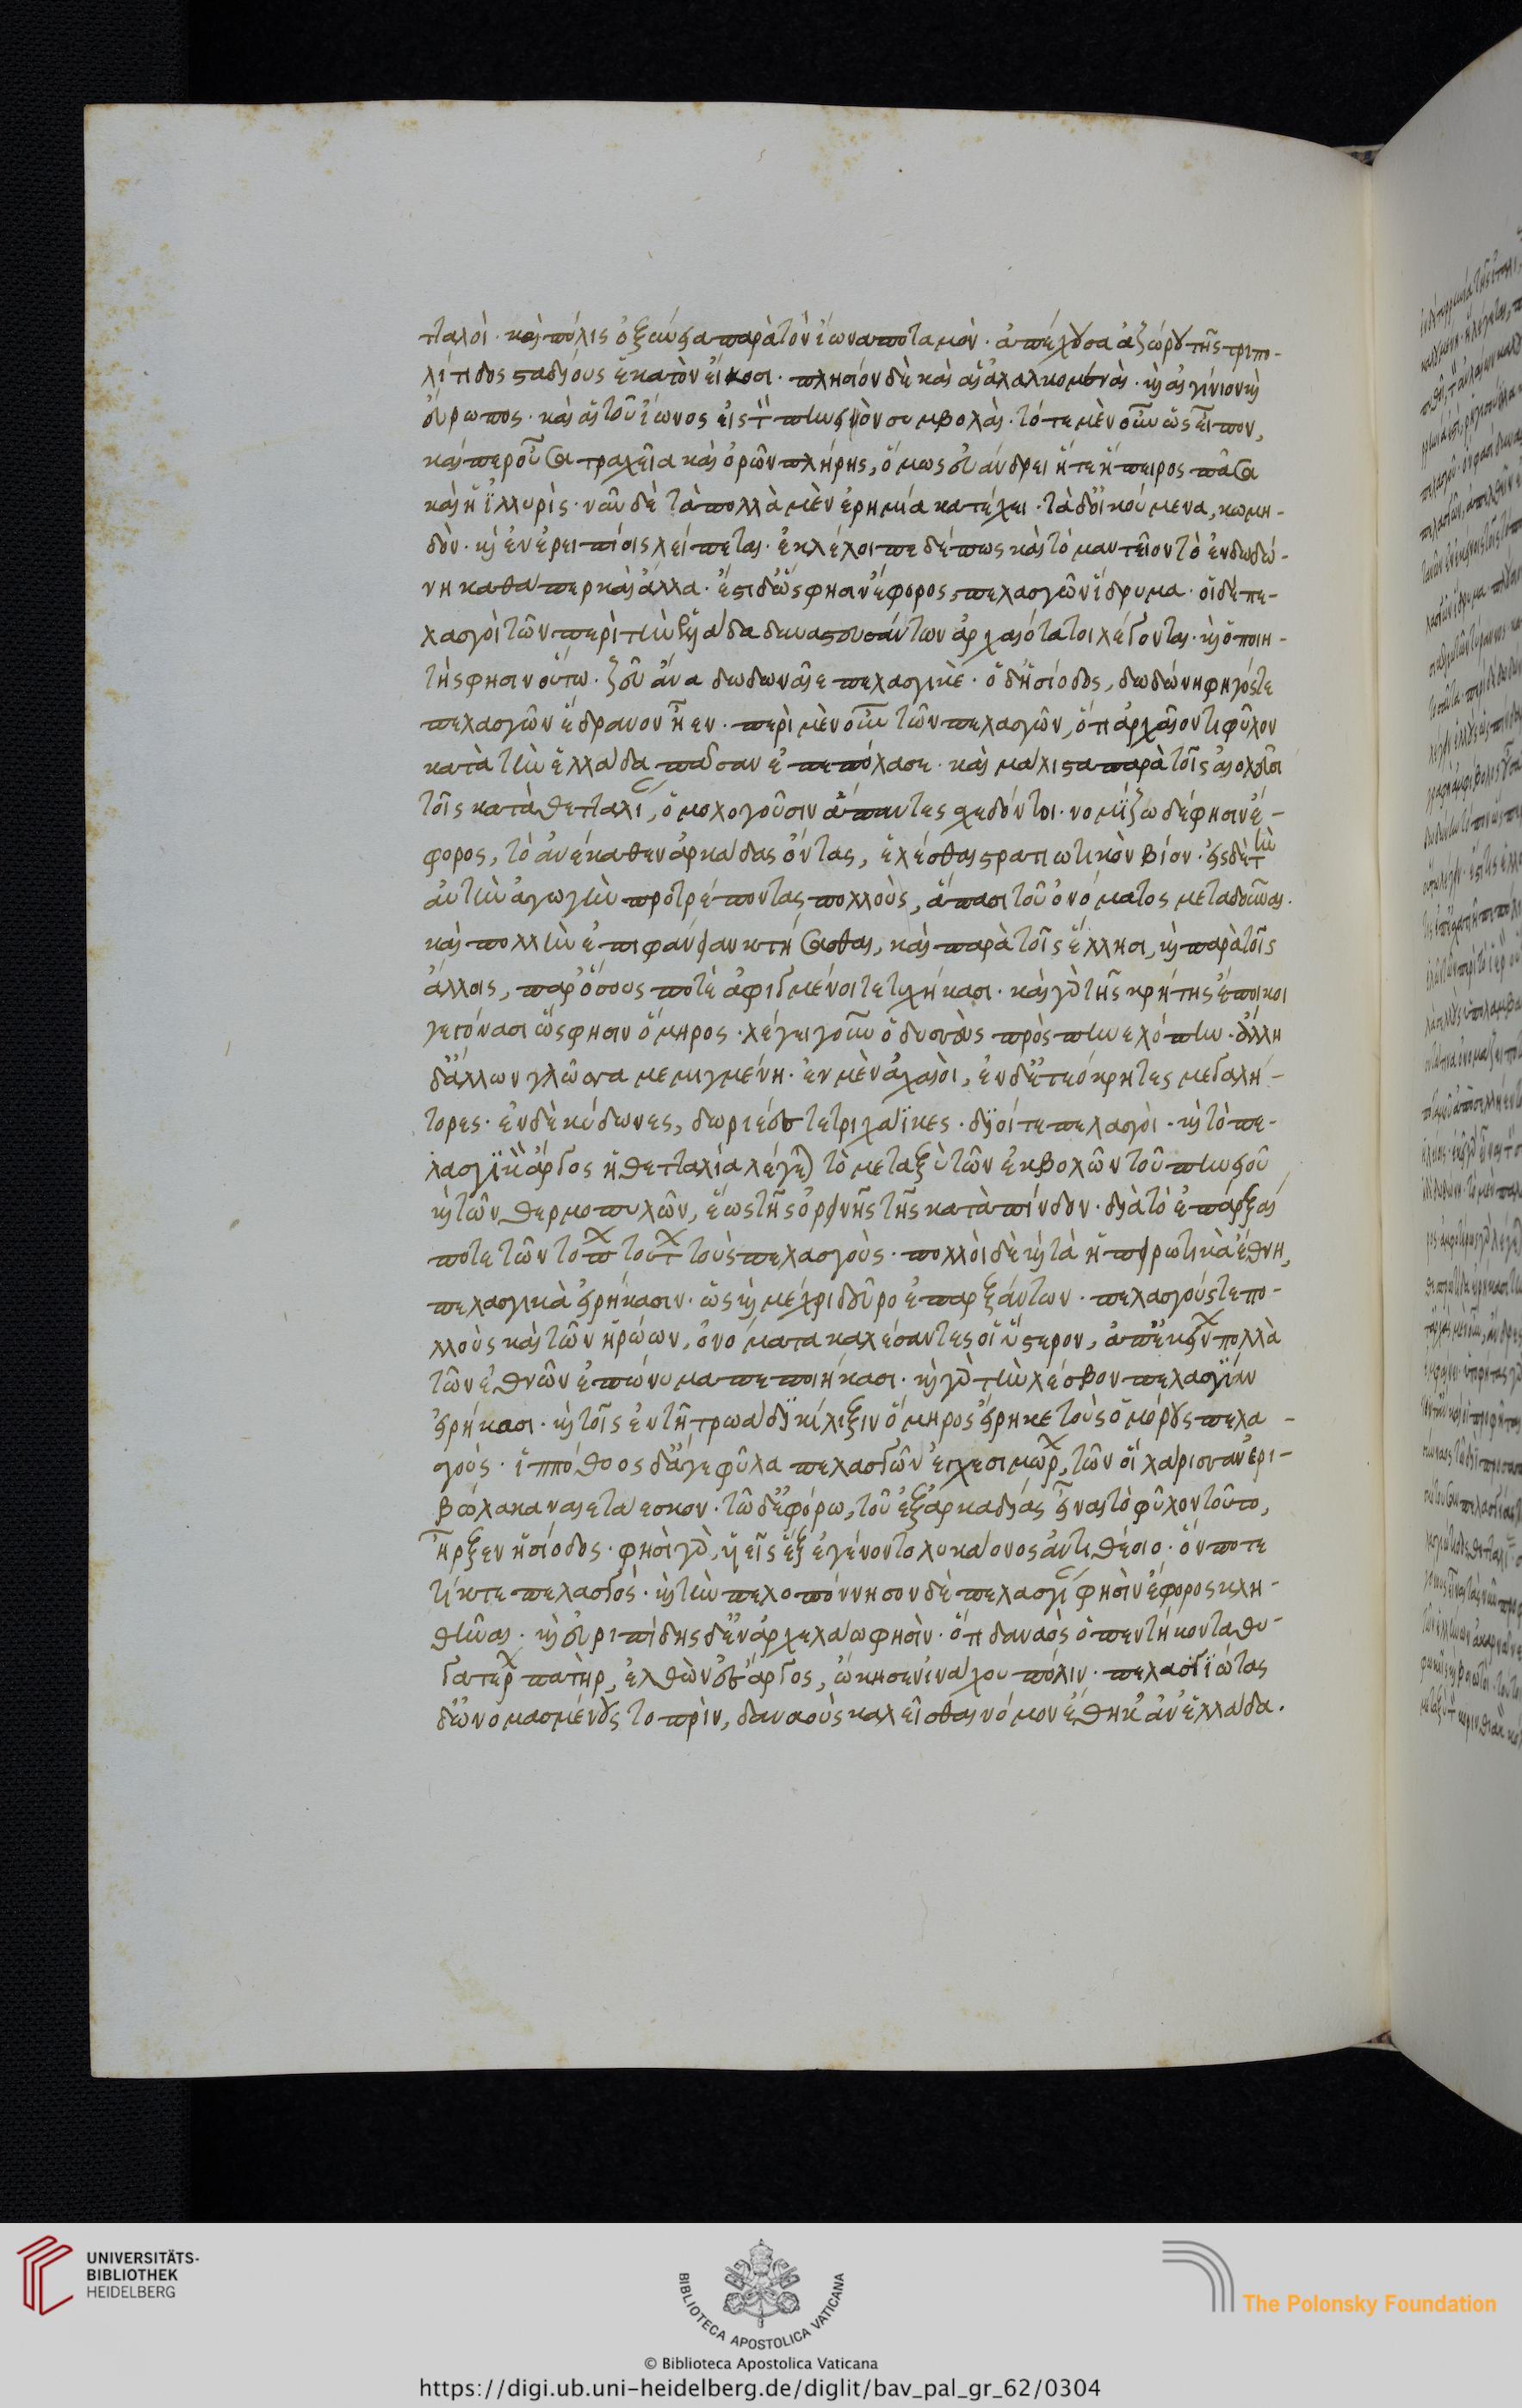 τταλοὶ · καὶ πόλις ὀξεῖνα παρὰ τὸν ἴωνα ποταμὸν · ἀπέχουσα ἀζώρου τῆς τριπο-
λίτιδος σταδίους ἑκατὸν εἴκοσι · πλησίον δὲ καὶ αἱ ἀλαλκομεναὶ · καὶ αἰγίνιον καὶ
εὔρωπος · καὶ αἱ τοῦ ἴωνος εἰς τὸν πηνειὸν συμβολαὶ · τότε μὲν οὖν ὡς εἶπον,
καίπερ οὖσα τραχεῖα καὶ ὀρῶν πλήρης, ὅμως εὐάνδρει ἥτε ἤπειρος πᾶσα
καὶ ἡ ἰλλυρίς · νῦν δὲ τὰ πολλὰ μὲν ἐρημία κατέχει · τὰ δ' οἰκούμενα, κωμη-
δὸν · καὶ ἐν ἐρειπίοις λείπεται · ἐκλέλοιπε δέ πως καὶ τὸ μαντεῖον τὸ ἐν δωδώ-
νη καθάπερ καὶ ἄλλα · ἔστι δ' ὥς φησιν ἔφορος, πελασγῶν ἵδρυμα · οἱ δὲ πε-
λασγοὶ τῶν περὶ τὴν ἑλλάδα δυναστευσάντων ἀρχαιότατοι λέγονται · καὶ ὁ ποιη-
τής φησιν οὕτω · ζεῦ ἄνα δωδωναῖε πελασγικὲ · ὁ δ' ἡσίοδος, δωδώνη φηγόν τε
πελασγῶν ἕδρανον ἧεν · περὶ μὲν οὖν τῶν πελασγῶν, ὅτι ἀρχαῖον τι φῦλον
κατὰ τὴν ἑλλάδα πᾶσαν ἐπεπόλασε · καὶ μάλιστα παρὰ τοῖς αἰολεῦσι
τοῖς κατὰ θετταλί, ὁμολογοῦσιν ἅπαντες σχεδόν τοι · νομίζω δέ φησιν ἔ-
φορος, τὸ ἀνέκαθεν ἀρκάδας ὄντας, ἑλέσθαι στρατιωτικὸν βίον · εἰς δὲ τὴν
αὐτὴν ἀγωγὴν προτρέποντας πολλοὺς, ἅπασι τοῦ ὀνόματος μεταδοῦναι ·
καὶ πολλὴν ἐπιφάνειαν κτήσασθαι, καὶ παρὰ τοῖς ἕλλησι, καὶ παρὰ τοῖς
ἄλλοις, παρ' ὅσους ποτὲ ἀφιγμένοι τετυχήκασι · καὶ γὰρ τῆς κρήτης ἔποικοι
γεγόνασι ὥς φησιν ὅμηρος · λέγει γοῦν ὀδυσσεὺς πρὸς πηνελόπην · ἄλλη
δ' ἄλλων γλῶσσα μεμιγμένη · ἐν μὲν ἀχαιοὶ, ἐν δ' ἐτεόκρητες μεγαλή-
τορες · ἐν δὲ κύδωνες, δωριέες τε τριχάϊκες · δῖοί τε πελασγοὶ · καὶ τὸ πε-
λασγικὸν ἄργος ἡ θετταλία λέγεται τὸ μεταξὺ τῶν ἐκβολῶν τοῦ πηνειοῦ
καὶ τῶν θερμοπυλῶν, ἕως τῆς ὀρεινῆς τῆς κατὰ πίνδον · διὰ τὸ ἐπάρξαι
ποτε τῶν τόπων τούτων τοὺς πελασγοὺς · πολλοὶ δὲ καὶ τὰ ἠπειρωτικὰ ἔθνη,
πελασγικὰ εἰρήκασιν · ὡς καὶ μέχρι δεῦρο ἐπαρξάντων · πελασγούς τε πο-
λλοὺς καὶ τῶν ἡρώων, ὀνόματα καλέσαντες οἱ ὕστερον, ἀπ' ἐκείνων πολλὰ
τῶν ἐθνῶν ἐπώνυμα πεποιήκασι · καὶ γὰρ τὴν λέσβον πελασγίαν
εἰρήκασι · καὶ τοῖς ἐν τῇ τρωάδι κίλιξιν ὅμηρος εἴρηκε τοὺς ὁμόρους πελα-
σγοὺς · ἱππόθοος δ' ἄγε φῦλα πελασγῶν ἐγχεσιμώρων, τῶν οἳ λάρισσαν ἐρι-
βώλακα ναιετάεσκον · τῶ δ' ἐφόρω, τοῦ ἐξ ἀρκαδίας εἶναι τὸ φῦλον τοῦτο,
ἦρξεν ἡσίοδος · φησὶ γὰρ, υἱεῖς ἐξ ἐγένοντο λυκάονος ἀντιθέοιο · ὅν ποτε
τίκτε πελασγός · καὶ τὴν πελοπόννησον δὲ πελασγί φησὶν ἔφορος κλη-
θῆναι · καὶ εὐριπίδης δ' ἐν ἀρχελάω φησὶν · ὅτι δαναὸς ὁ πεντήκοντα θυ-
γατέρων πατὴρ, ἐλθὼν ἐς ἄργος, ὤκησεν ἰνάχου πόλιν · πελασγιώτας
δ' ὠνομασμένους τοπρὶν, δαναοὺς καλεῖσθαι νόμον ἔθηκ' ἀν' ἑλλάδα.
UNIVERSITÄTS-
BIBLIOTHEK
HEIDELBERG
BIBLIOTECA APOSTOLICA VATICANA
The Polonsky Foundation
© Biblioteca Apostolica Vaticana
https://digi.ub.uni-heidelberg.de/diglit/bav_pal_gr_62/0304